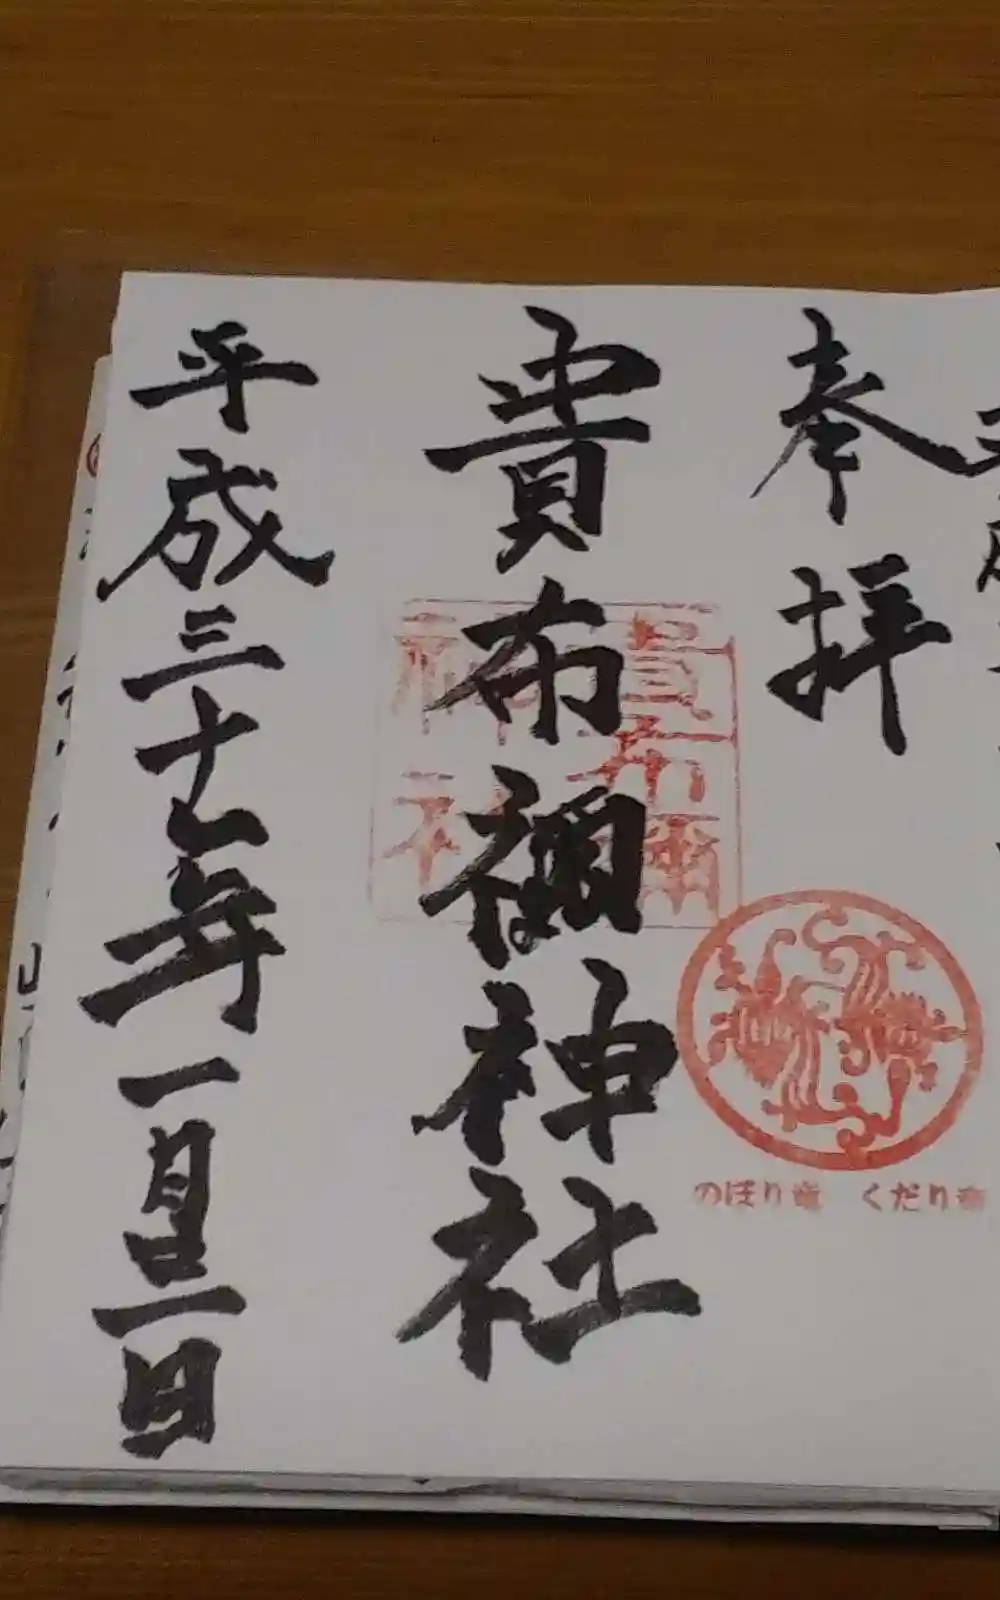 奉拝
貴布禰神社
平成三十一年一月三日
貴布禰
神社
のぼり竜 くだり竜